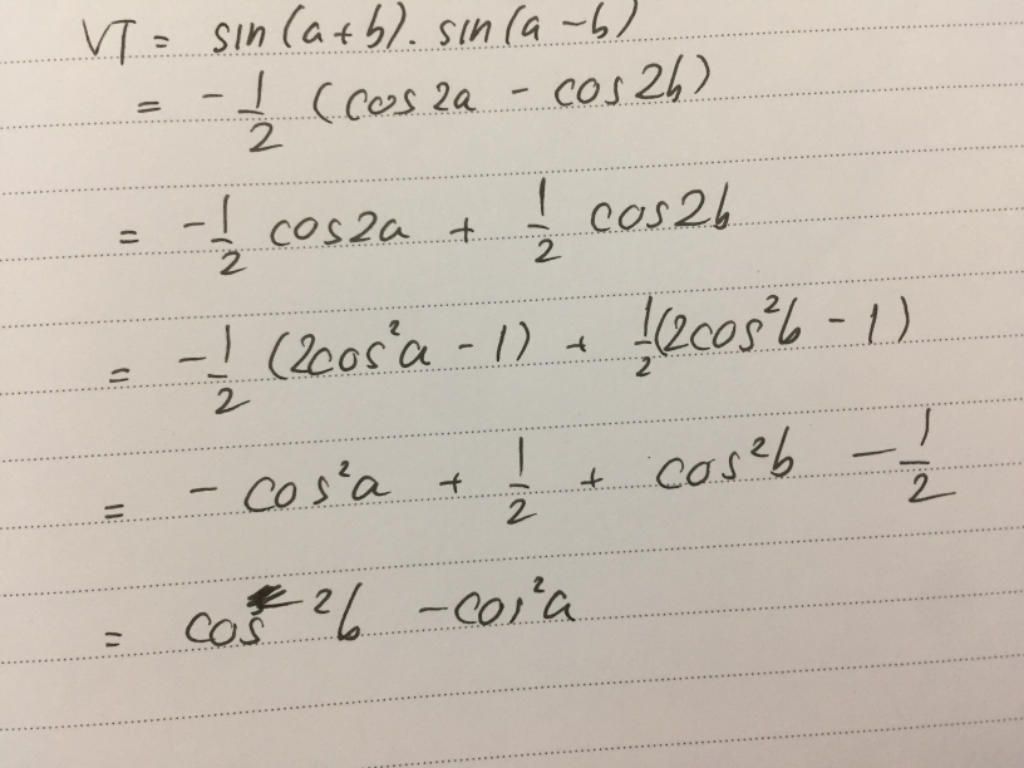 VT = sin(a+b). sin(a-b)
= -1/2 (cos2a - cos2b)
= -1/2 cos2a + 1/2 cos2b
= -1/2 (2cos²a - 1) + 1/2(2cos²b - 1)
= - cos²a + 1/2 + cos²b - 1/2
= cos²b - cos²a